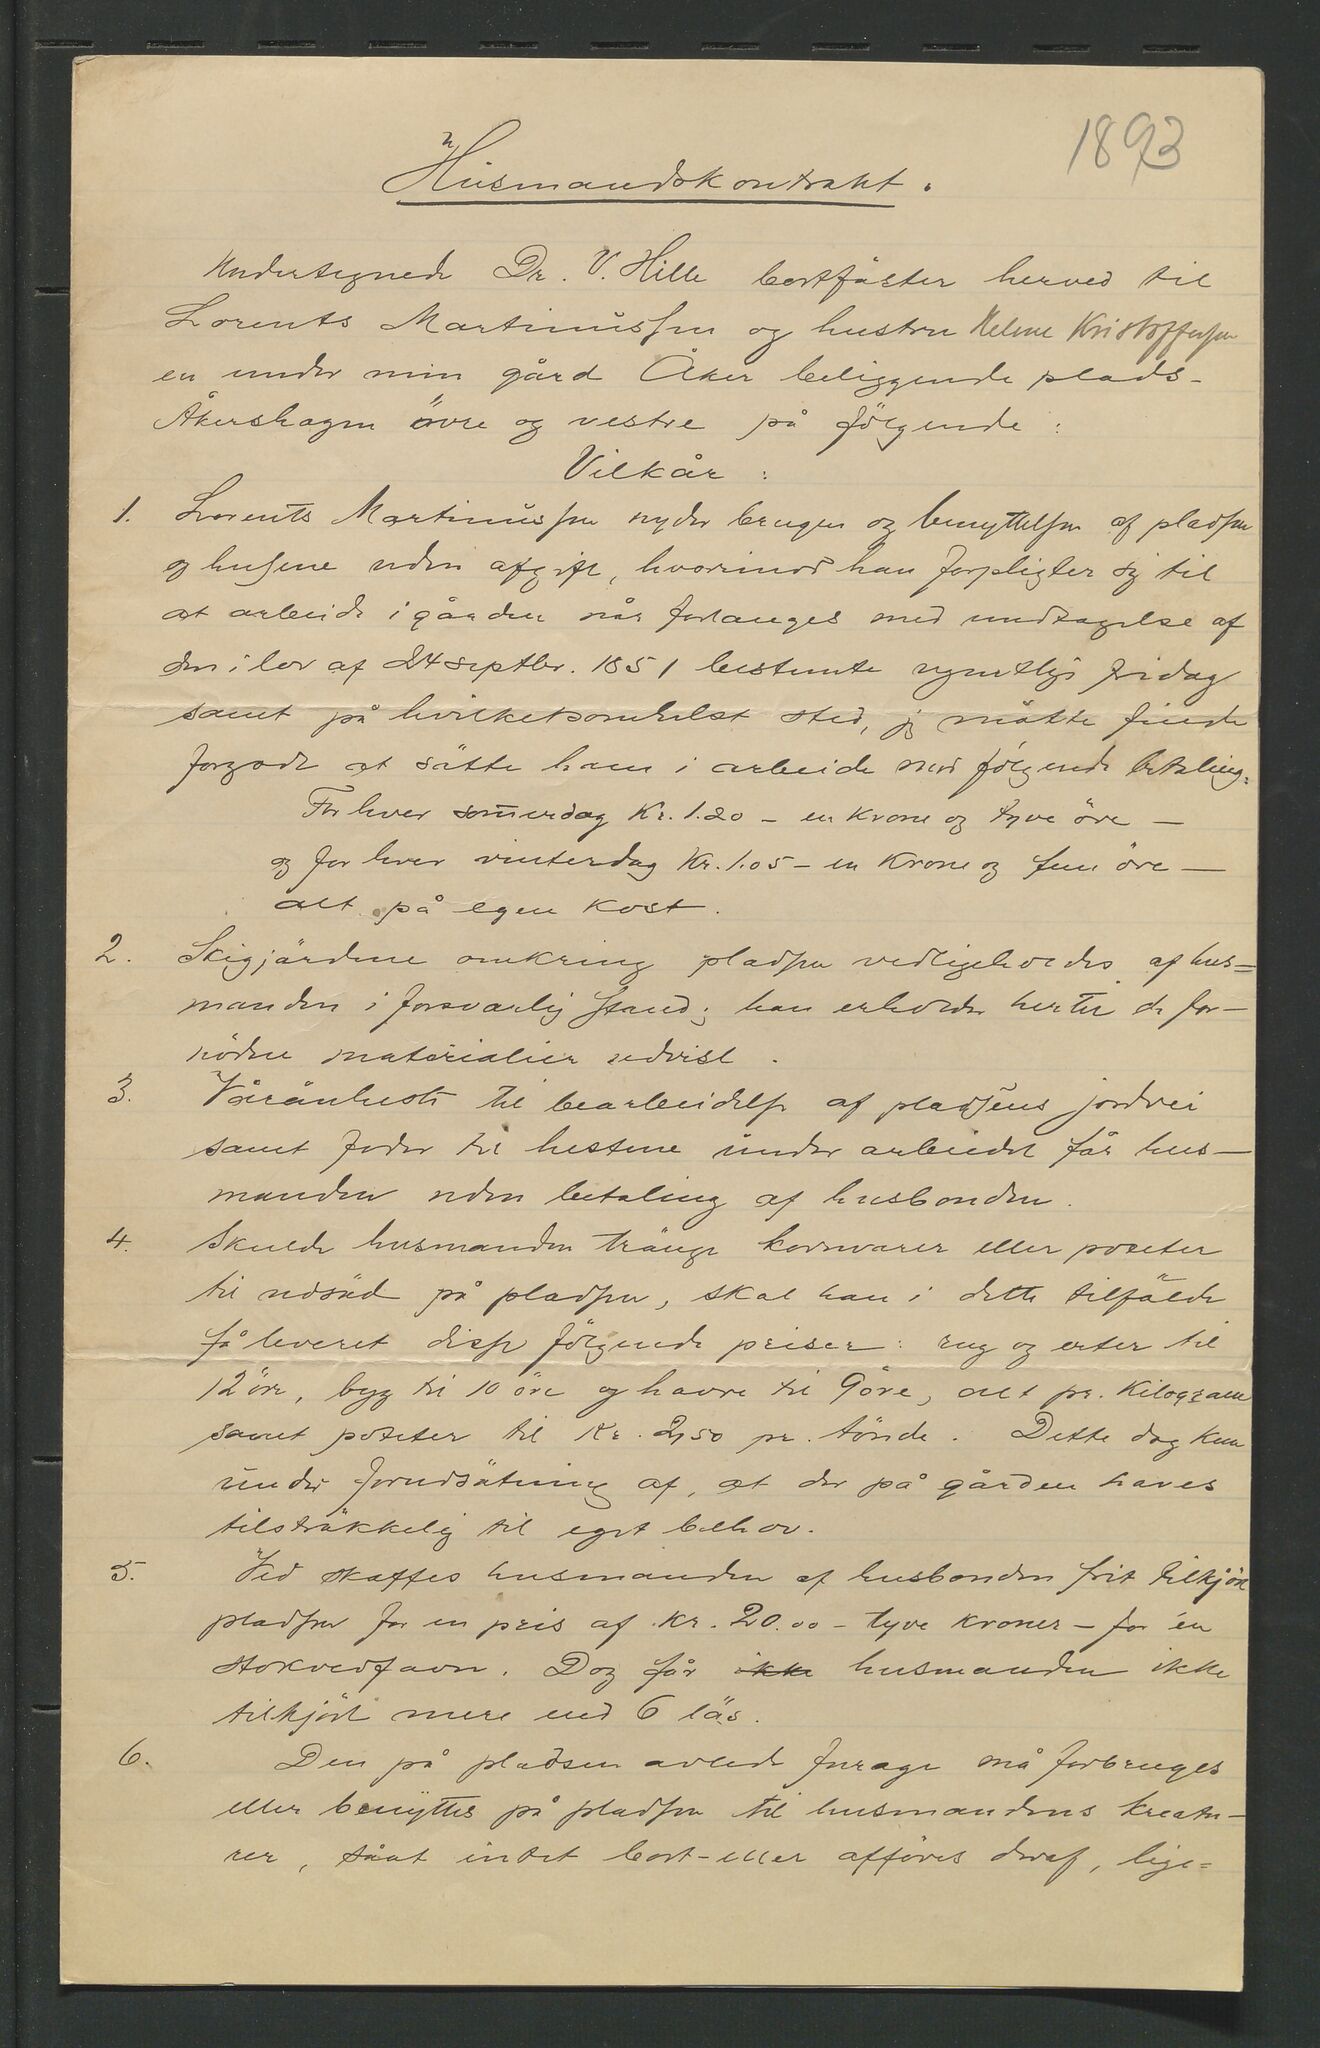 1893
Husmandskontrakt.
Undertegnede Dr. V. Hille bortfäster herved til
Lorents Martinussen og hustru Helene Kristoffersen
en under min gård Åker beliggende plads-
Åkershagen övre og vestre på fölgende:
Vilkår:
1. Lorents Martinussen nyder brugen og benyttelsen af pladsen
og husene uden afgift, hvorimod han forpligter sig til
at arbeide i gården når forlanges med undtagelse af
den i lov af 24 septbr. 1851 bestemte ugentlige fridag
samt på hvilketsomhelst sted, jeg måtte finde
forgodt at sätte ham i arbeide mod fölgende betaling:
For hver sommerdag Kr. 1.20 - en krone og tyve öre -
og for hver vinterdag Kr. 1.05 - en krone og fem öre -
alt på egen kost.
2. Skigjärdene omkring pladsen vedligeholdes af hus=
manden i forsvarlig stand; han erholder hertil de for-
nödne materialier udvist.
3. Våranheste til bearbeidelse af pladsens jordvei
samt foder til hestene under arbeidet får hus-
manden uden betaling af husbonden.
4. Skulde husmanden tränge kornvarer eller poteter
til udsäd på pladsen, skal han i dette tilfälde
få leveret disse fölgende priser: rug og erter til
12 öre, byg til 10 öre og havre til 9 öre, alt pr. Kilogram
samt poteter til Kr. 2,50 pr. tönde. Dette dog kun
under forudsätning af, at der på gården haves
tilsträkkelig til eget behov.
5. Ved skaffes husmanden af husbonden frit tilkjört
pladsen for en pris af Kr. 20.00 - tyve kroner - for én
stokvedfavn. Dog får ikke husmanden ikke
tilkjört mere end 6 läs.
6. Den på pladsen avlede furage må forbruges
eller benyttes på pladsen til husmandens kreatu-
rer, såat intet bort- eller afföres deraf, lige=